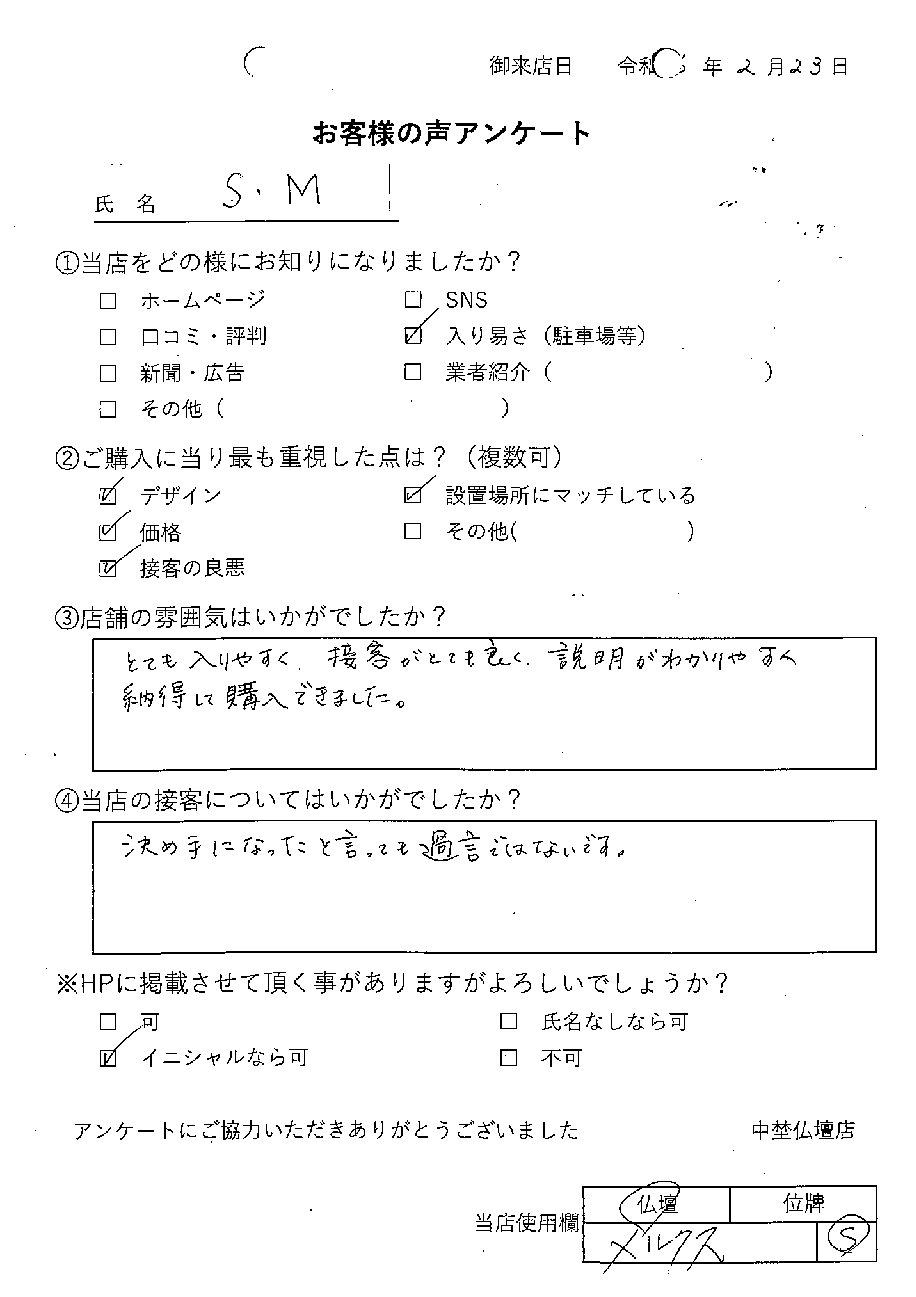 御来店日 令和 年 2月23日
お客様の声アンケート
氏 名 S・M
①当店をどの様にお知りになりましたか?
□ ホームページ □ SNS
□ 口コミ・評判 ☑ 入り易さ(駐車場等)
□ 新聞・広告 □ 業者紹介( )
□ その他( )
②ご購入に当り最も重視した点は?(複数可)
☑ デザイン ☑ 設置場所にマッチしている
☑ 価格 □ その他( )
☑ 接客の良悪
③店舗の雰囲気はいかがでしたか?
とても入りやすく、接客がとても良く、説明がわかりやすく
納得して購入できました。
④当店の接客についてはいかがでしたか?
決め手になったと言っても過言ではないです。
※HPに掲載させて頂く事がありますがよろしいでしょうか?
□ 可 □ 氏名なしなら可
☑ イニシャルなら可 □ 不可
アンケートにご協力いただきありがとうございました 中埜仏壇店
当店使用欄 仏壇 位牌
メルクス S